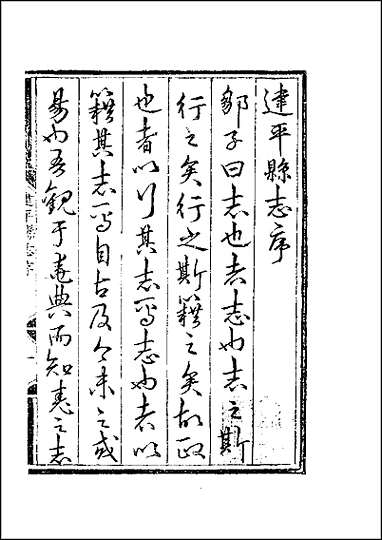 建平縣志序
鄒子曰志也者志也志之斯
行之矣行之斯籍之矣故政
也者以行其志焉志也者以
籍其志焉自古及今未之或
易也吾觀于堯典而知堯之志
建平縣志序